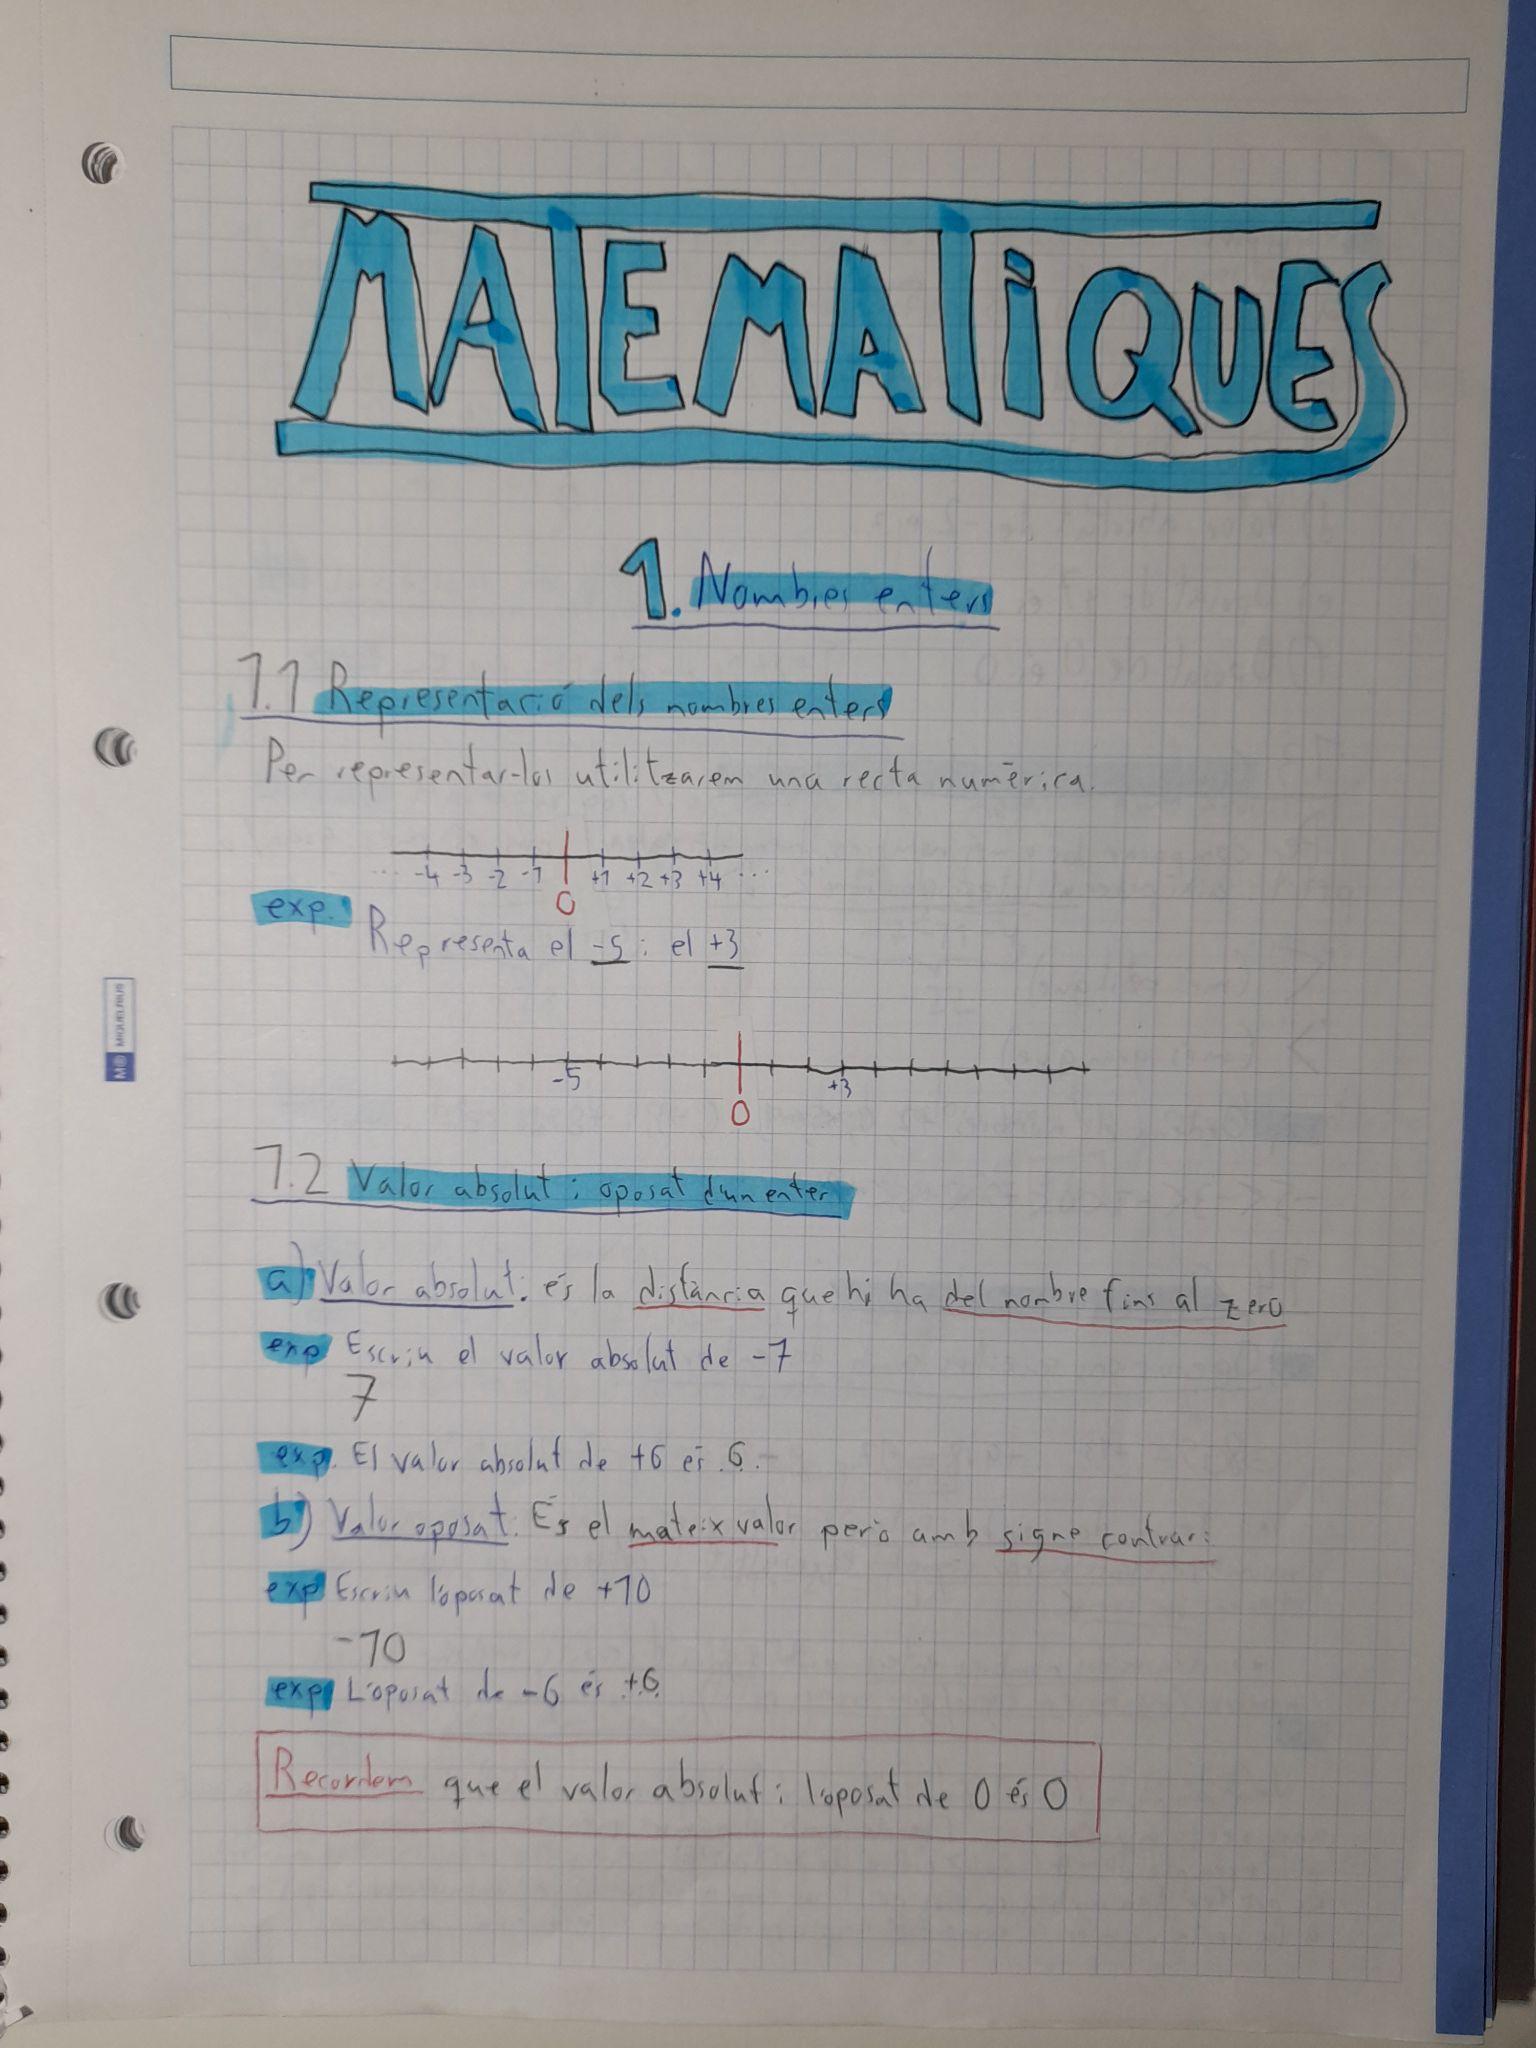 MATEMATiQUES
1. Nombres enters
1.1 Representació dels nombres enters
Per representar-los utilitzarem una recta numèrica.
... -4 -3 -2 -1 0 +1 +2 +3 +4 ...
exp. Representa el -5 i el +3
-5 0 +3
1.2 Valor absolut i oposat d'un enter
a) Valor absolut: és la distància que hi ha del nombre fins al zero
exp Escriu el valor absolut de -7
7
exp. El valor absolut de +6 és .6.
b) Valor oposat: És el mateix valor però amb signe contrari
exp Escriu l'oposat de +10
-10
exp L'oposat de -6 és .+6.
Recordem que el valor absolut i l'oposat de 0 és 0
M® MIQUELRIUS